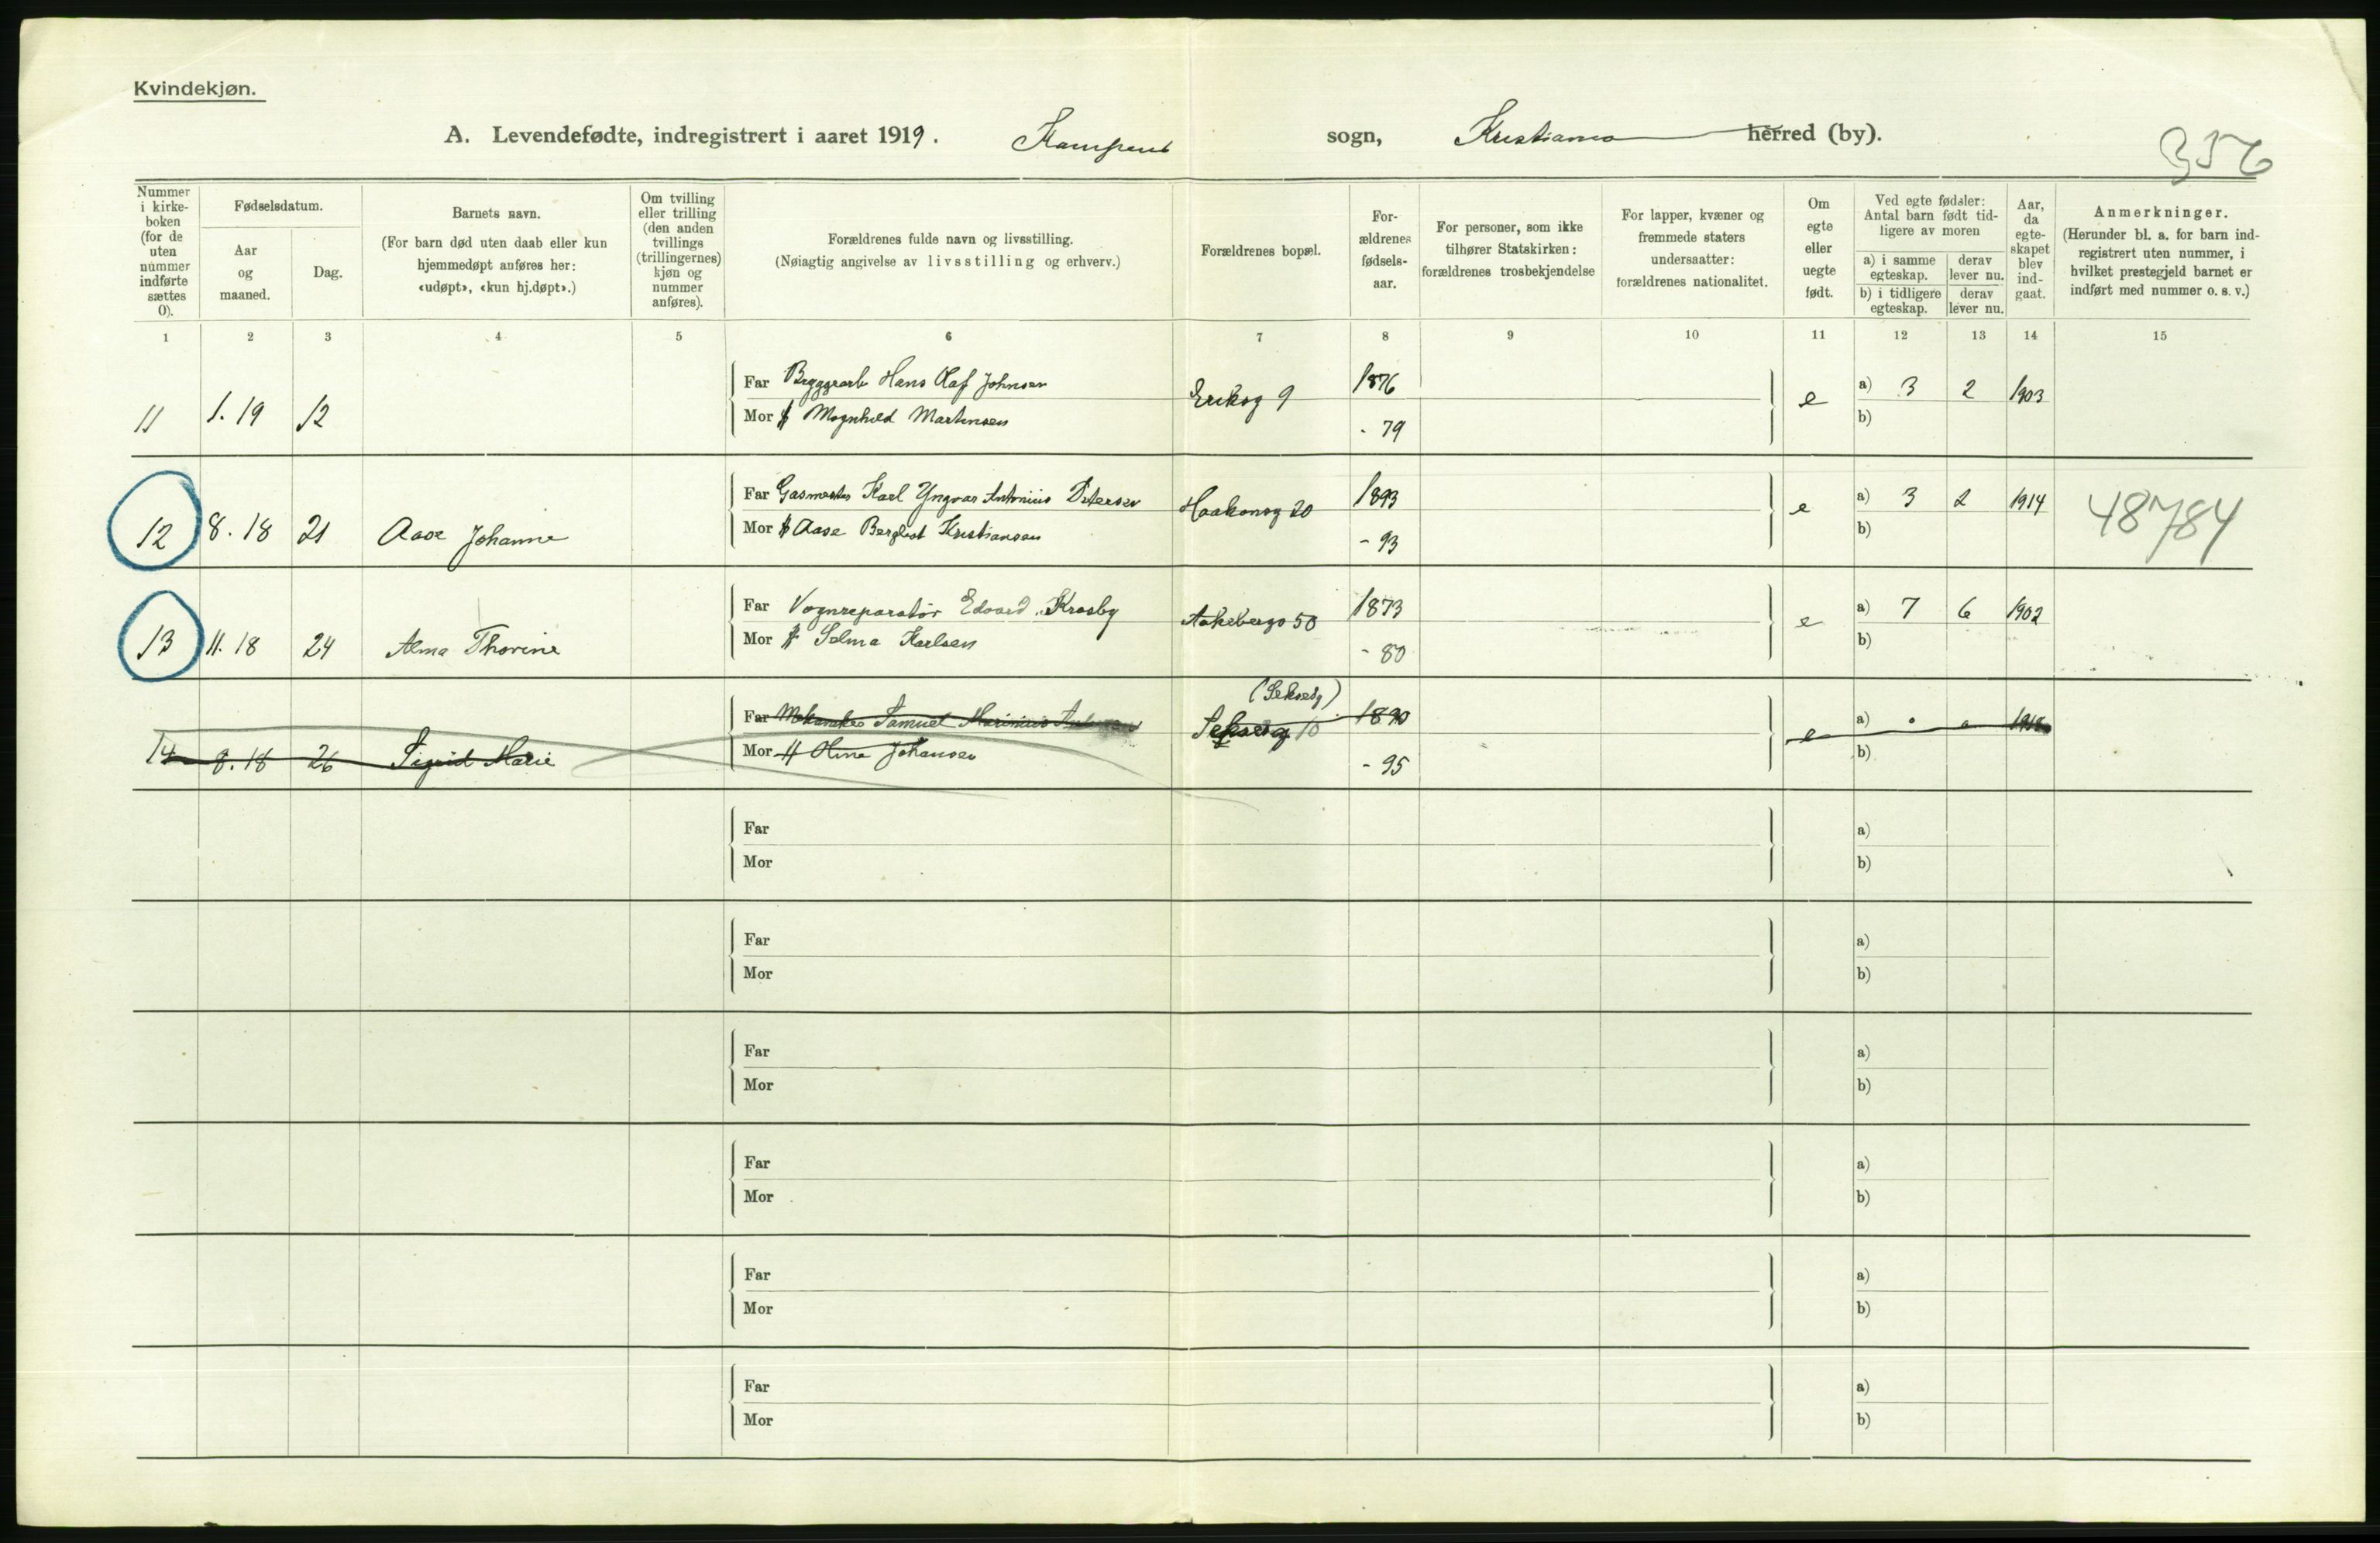 Kvindekjøn.
A. Levendefødte, indregistrert i aaret 1919. Kampens sogn, Kristiania herred (by).
356
Nummer i kirke-boken (for de uten nummer indførte sættes 0).
Fødselsdatum.
Aar og maaned.
Dag.
Barnets navn.
(For barn død uten daab eller kun hjemmedøpt anføres her: «udøpt», «kun hj.døpt».)
Om tvilling eller trilling (den anden tvillings (trillingernes) kjøn og nummer anføres).
Forældrenes fulde navn og livsstilling.
(Nøiagtig angivelse av livsstilling og erhverv.)
Forældrenes bopæl.
For-ældrenes fødsels-aar.
For personer, som ikke tilhører Statskirken: forældrenes trosbekjendelse
For lapper, kvæner og fremmede staters undersaatter: forældrenes nationalitet.
Om egte eller uegte født.
Ved egte fødsler: Antal barn født tid-ligere av moren
a) i samme egteskap.
derav lever nu.
b) i tidligere egteskap.
derav lever nu.
Aar, da egte-skapet blev ind-gaat.
Anmerkninger.
(Herunder bl. a. for barn ind-registrert uten nummer, i hvilket prestegjeld barnet er indført med nummer o. s. v.)
1 2 3 4 5 6 7 8 9 10 11 12 13 14 15
Far Bryggearb Hans Olaf Johnsen 1876 a) 3 2 1903
11 1. 19 12 Mor Magnhild Martinsen Eriksg 9 - 79 e b)
Far Gasmester Karl Yngvar Antonius Petersen 1893 a) 3 2 1914
12 8. 18 21 Aase Johanne Mor Aase Bergliot Kristiansen Haakonsg 20 - 93 e b) 48784
Far Vognreparatør Edvard Krosby 1873 a) 7 6 1902
13 11. 18 24 Alma Thorine Mor Selma Karlsen Aakebergv 50 - 80 e b)
Far Mekaniker Samuel Marinius 1890 a)
14 8. 18 26 Sigrid Marie Mor Oline Johansen 10 - 95 e b)
Far a)
Mor b)
Far a)
Mor b)
Far a)
Mor b)
Far a)
Mor b)
Far a)
Mor b)
Far a)
Mor b)